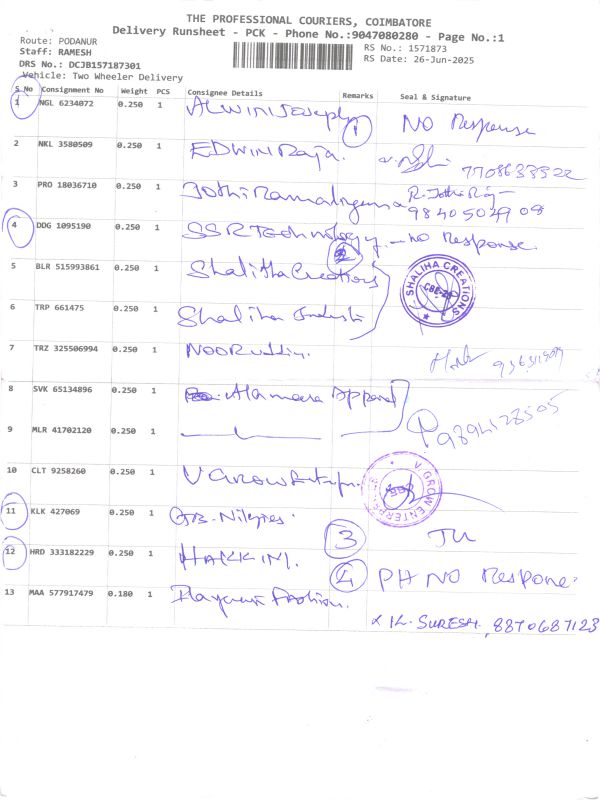 THE PROFESSIONAL COURIERS, COIMBATORE
Delivery Runsheet - PCK - Phone No.:9047080280 - Page No.:1
Route: PODANUR
RS No.: 1571873
Staff: RAMESH
RS Date: 26-Jun-2025
DRS No.: DCJB157187301
Vehicle: Two Wheeler Delivery
S.No Consignment No Weight PCS Consignee Details Remarks Seal & Signature
1 NGL 6234072 0.250 1 Alwin Joseph 1 NO Response
2 NKL 3580509 0.250 1 EDWIN Raja. 7708633522
3 PRO 18036710 0.250 1 Jothi Ramalingam R. Jothi Raj
9840504908
4 DDG 1095190 0.250 1 SSR Technology 2 no Response.
5 BLR 515993861 0.250 1 Shalitha Creations SHALIHA CREATIONS CBE-23
6 TRP 661475 0.250 1 Shaliha
7 TRZ 325506994 0.250 1 NOORuddin.
8 SVK 65134896 0.250 1 Alameera Apparel
9 MLR 41702120 0.250 1 9894128505
10 CLT 9258260 0.250 1 V Grow V GROW ENTERPRISES
11 KLK 427069 0.250 1 Nilgiris. 3
12 HRD 333182229 0.250 1 HAKKIM. 4 PH NO Respone.
13 MAA 577917479 0.180 1 Fashion.
K. SURESH. 8870687123